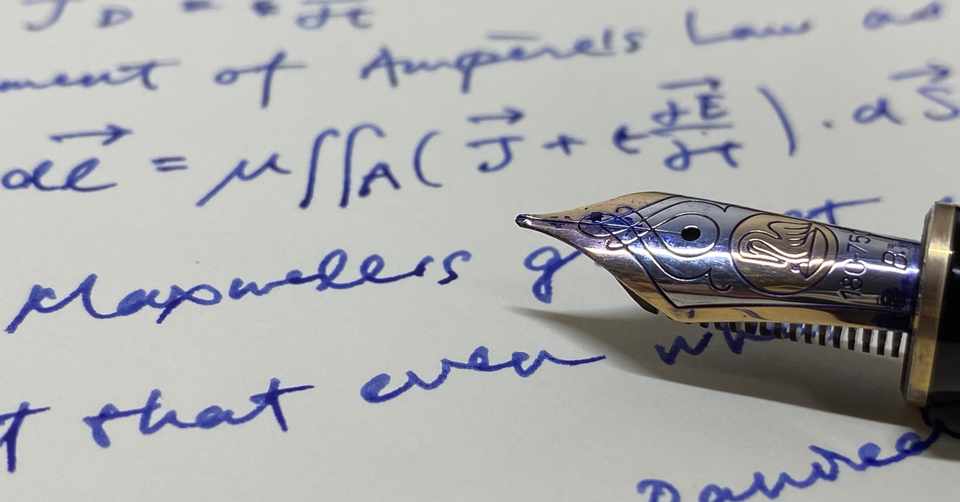 J_D = ϵ ∂E/∂t
ment of Ampère's Law as
dl⃗ = μ∬_A ( J⃗ + ϵ ∂E⃗/∂t ) · dS⃗
Maxwell's g
t that even
18C-750
B